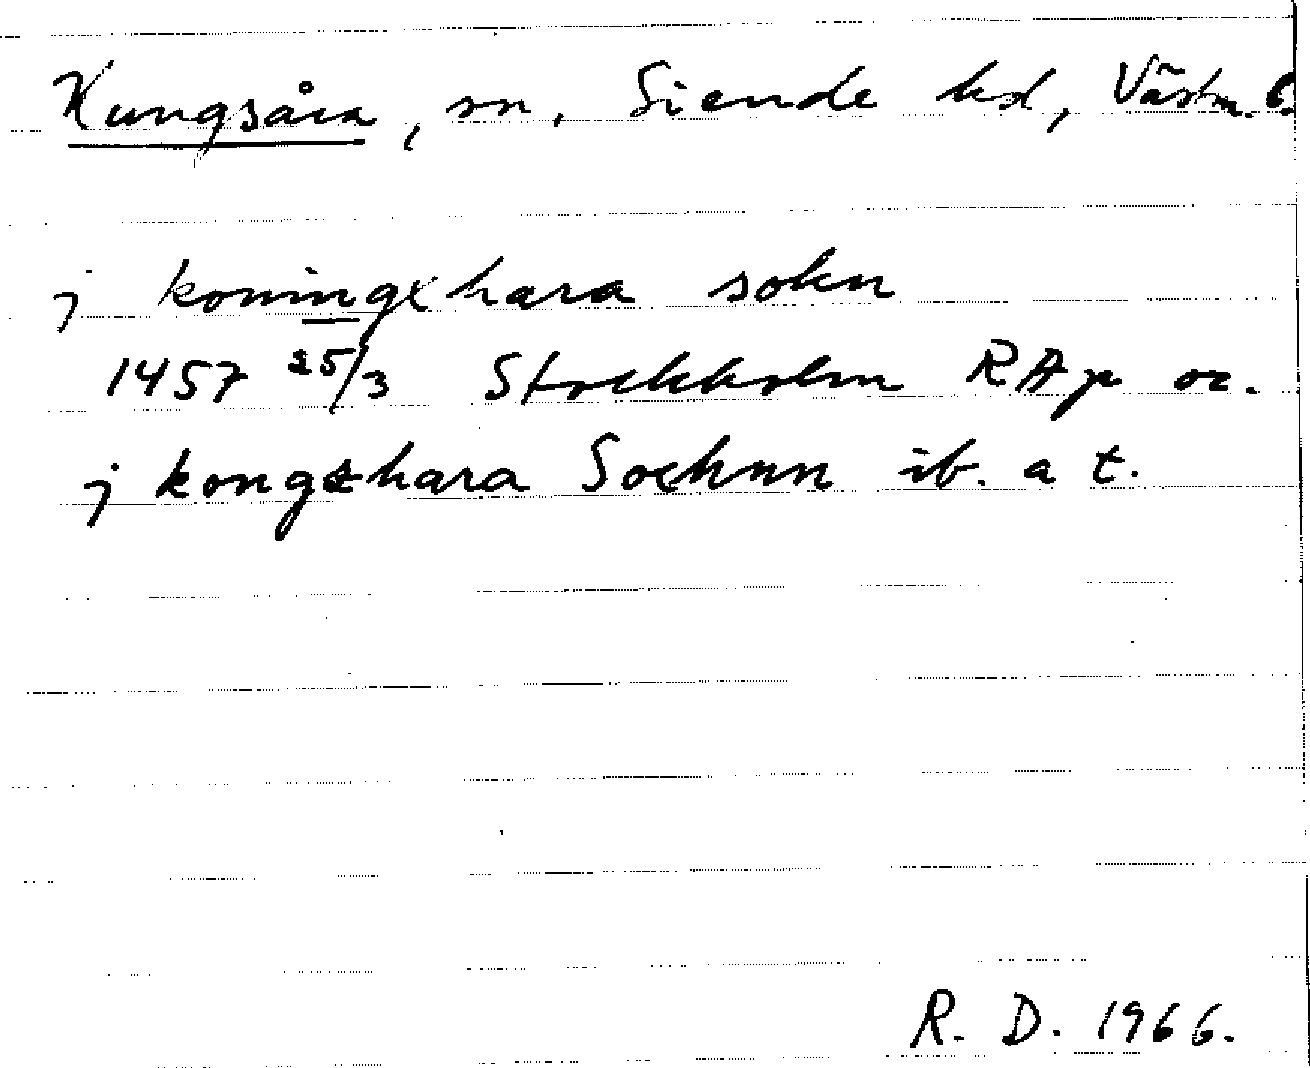 Kungsåra, sn, Siende hd, Västm.
j koningxhara sokn
1457 25/3 Stockholm RAp or.
j kongxhara Sochnn ib. a t.
R. D. 1966.